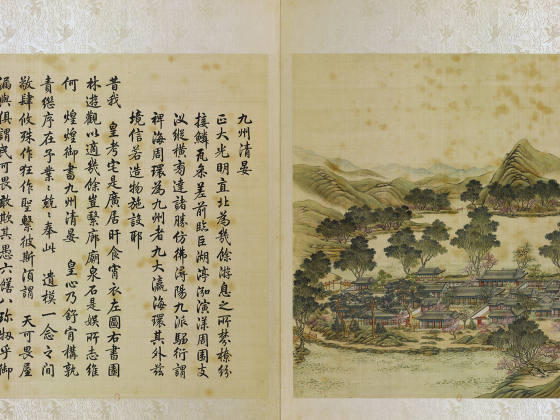 九州清晏
正大光明直北為幾餘游息之所棼橑紛
接鱗瓦參差前臨巨湖渟泓演漾周圍支
汊縱橫旁達諸勝仿彿潯陽九派騶衍謂
裨海周環為九州者九大瀛海環其外茲
境信若造物施設耶
昔我 皇考宅是廣居旰食宵衣左圖右書園
林遊觀以適幾餘豈繄廊廟泉石是娛所志維
何 煌煌御書九州清晏 皇心乃舒肯構孰
責繼序在予業々兢々奉此 遺模一念之間
敬肆攸殊作狂作聖繫彼斯須謂 天可畏屋
漏與俱謂民可畏敢欺其愚六膳八珍牣乎御